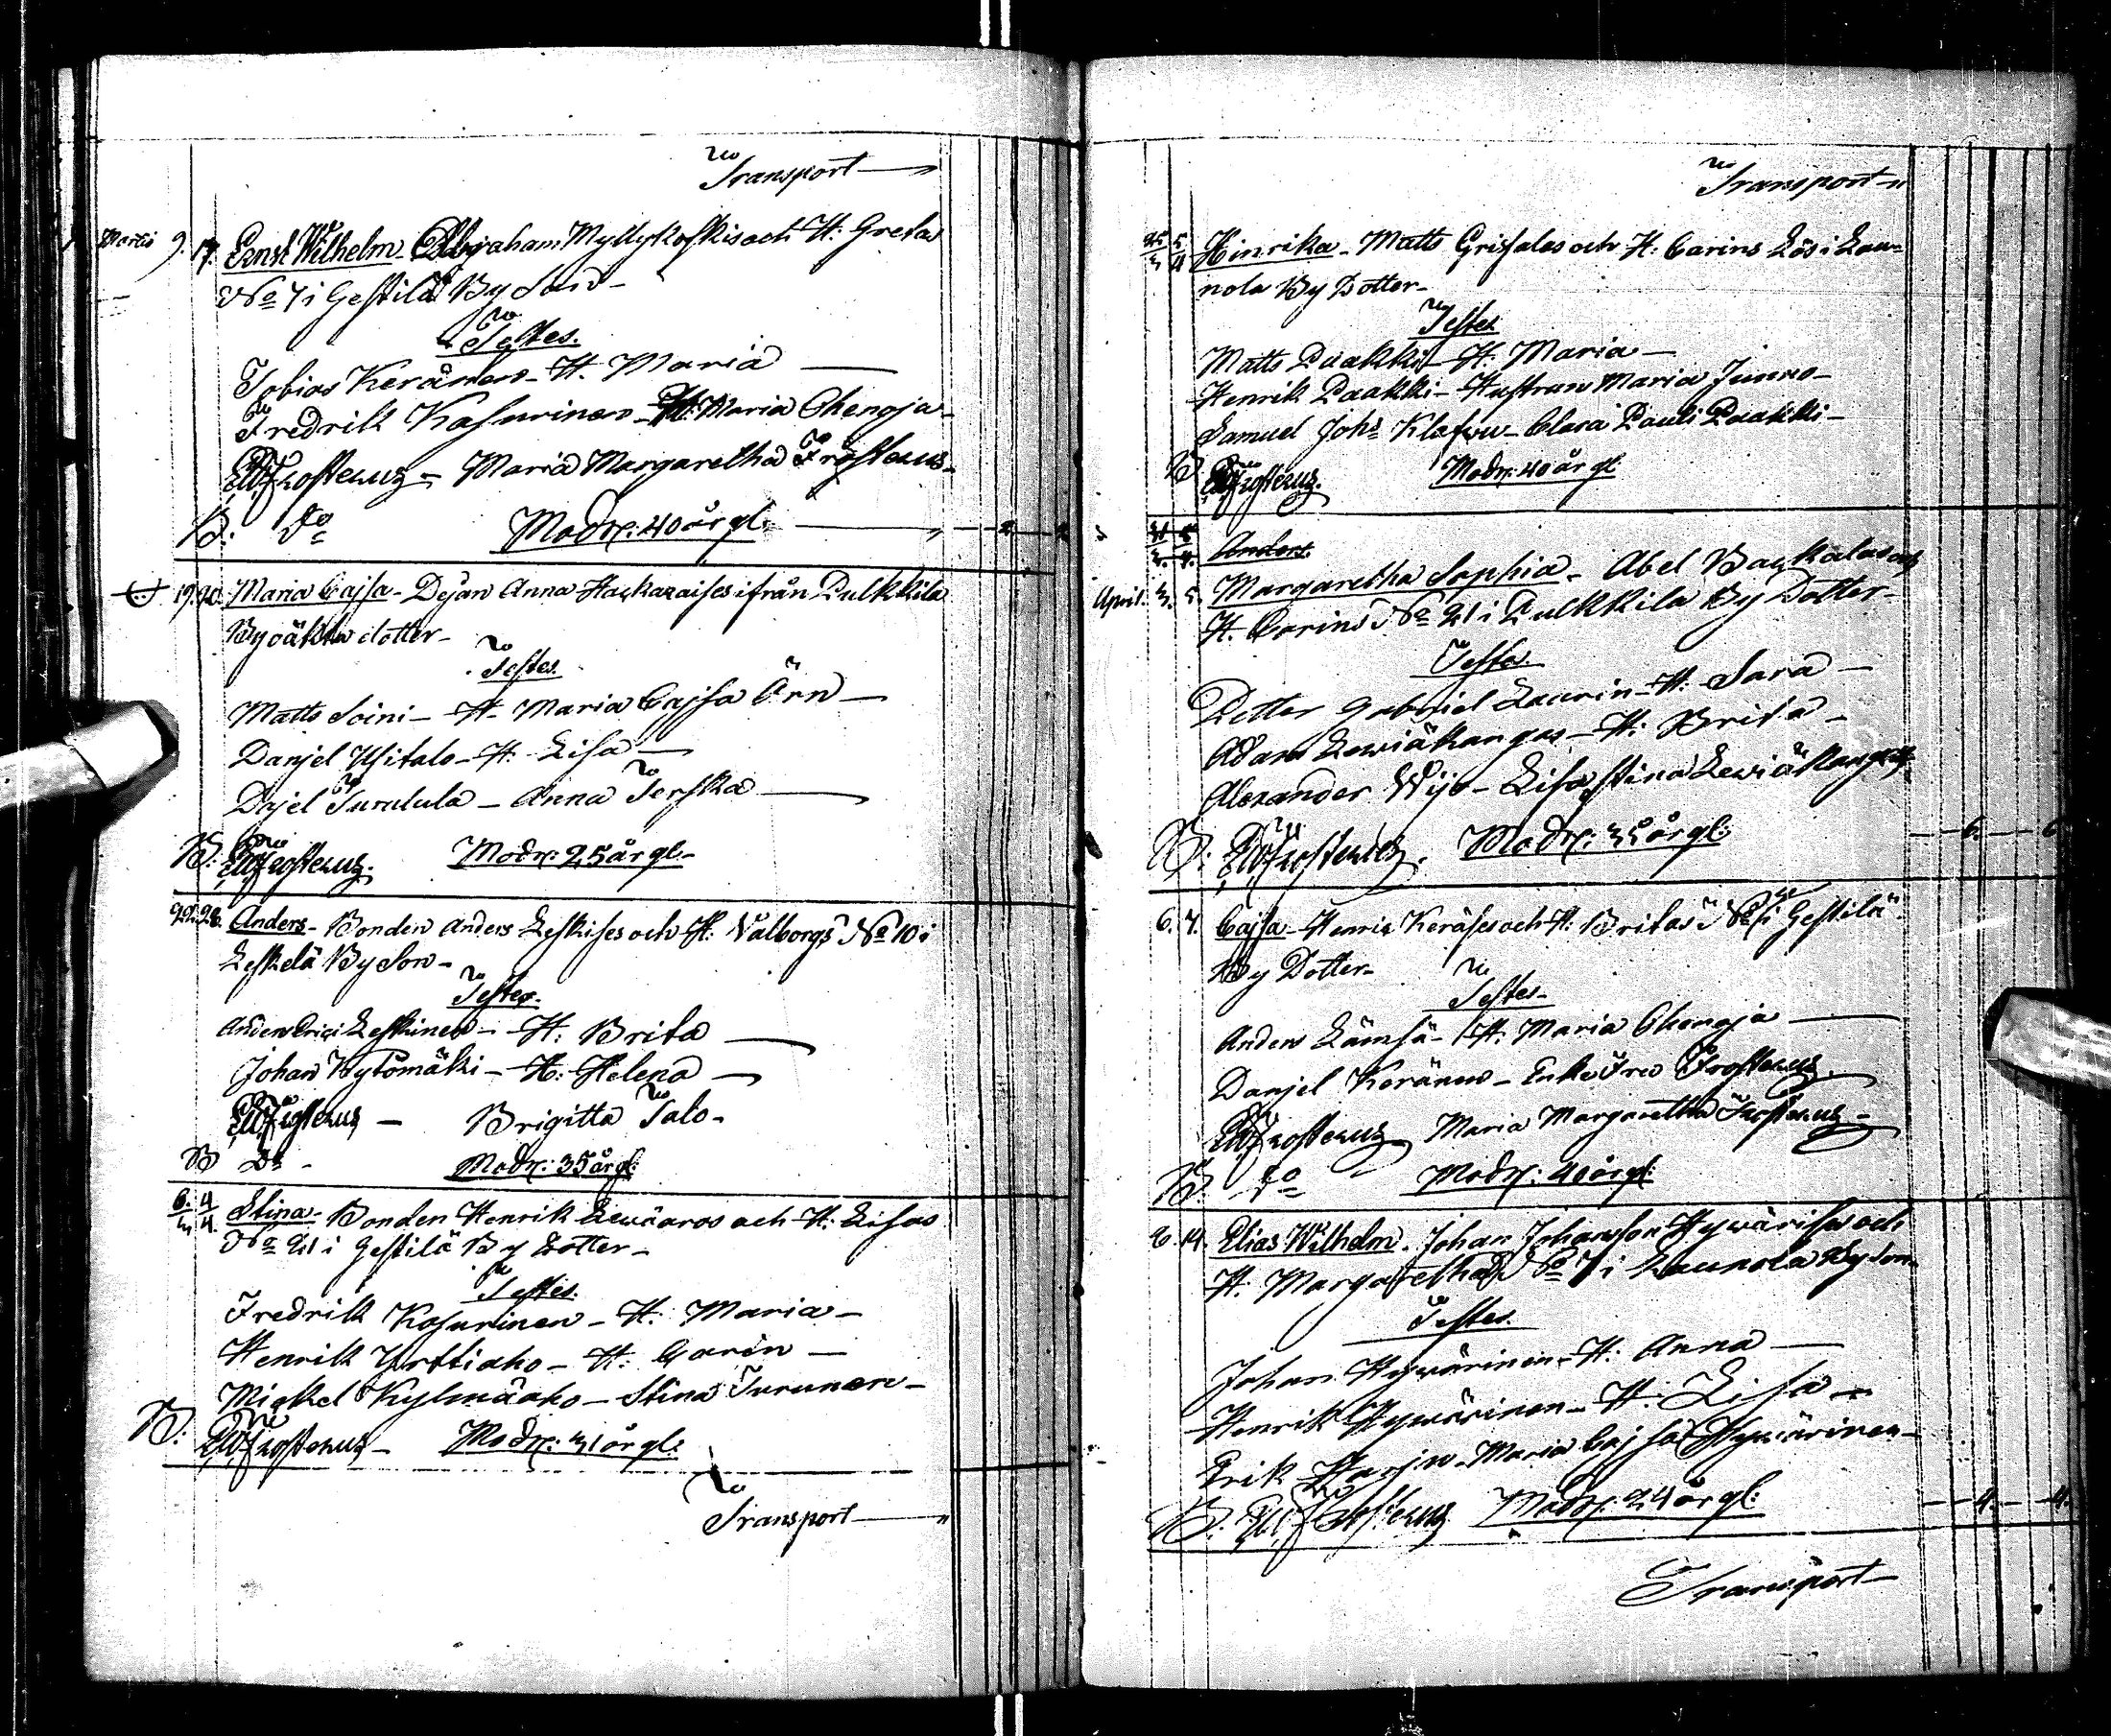 Transport
Martii 9. 17. Ernst Wilhelm - Abraham Myllykoskis och H: Gretas
No 7 i Gestilä By Son -
Testes.
Tobias Keränen - H. Maria
Fredrik Kasurinen - H: Maria Chengja -
Frosterus - Maria Margaretha Frosterus -
B: Do Modr: 40 år gl:
19. 20. Maria Cajsa - Pejan Anna ifrån Pulkkila
By oäkta dotter -
Testes.
Matts Soini - H. Maria Cajsa Örn -
Danjel Usitalo - H. Lisa -
Turulula - Anna Terska
B: Frosterus. Modr: 25 år gl. -
22. 28. Anders - Bonden Anders Leskises och H: Valborgs No 10 i
Leskelä By Son -
Testes.
Anders Leskinen - H: Brita
Johan Kytömäki - H: Helena -
Frosterus - Brigitta Talo -
B Do - Modr: 35 år gl:
6/3 4/4. Stina - Bonden Henrik och H: Lisas
No 21 i Gestilä By Dotter -
Testes.
Fredrik Kasurinen - H: Maria -
Henrik Yrttiaho - H: Carin -
Mickel Kylmäaho - Stina Turunen -
B: Frosterus - Modr: 31 år gl:
Transport
Transport
25/3 5/4 Hinrika - Matts Grisales och H: Carins Lös i Lau-
nola By Dotter -
Testes
Matts Paakki - H. Maria -
Henrik Paakki - Hustrun Maria Junno -
Samuel Johs - Clara Pauli Paakki -
B Frosterus. Modr: 40 år gl:
Anders.
April. 3. 5. Margaretha Sophia - Abel och
H. Carins No 21 i Pulkkila By Dotter -
Testes.
Petter Gabriel Laurin - H. Sara -
Adam Lewiäkangas - H: Brita -
Alexander Wijo - Lisa Stina Lewiäkangas
B: Frosterus. Modr: 35 år gl: 6. 6
6. 7. Cajsa - Henric Keräses och H: Britas No i Gestilä
By Dotter -
Testes -
Anders Lämsä - H. Maria Chengja
Danjel Keränen - Enke Fru Frosterus.
Frosterus Maria Margaretha Frosterus -
B: Do Modr: 40 år gl:
6. 14. Elias Wilhelm. Johan Johansson Hywärises och
H. Margarethas No 7 i Launola By Son.
Testes.
Johan Hywärinen - H: Anna
Henrik Hywärinen - H: Lisa
Erik Harju - Maria Cajsa Hywärinen -
B: Frosterus Modr: 24 år gl: 4. 4.
Transport -